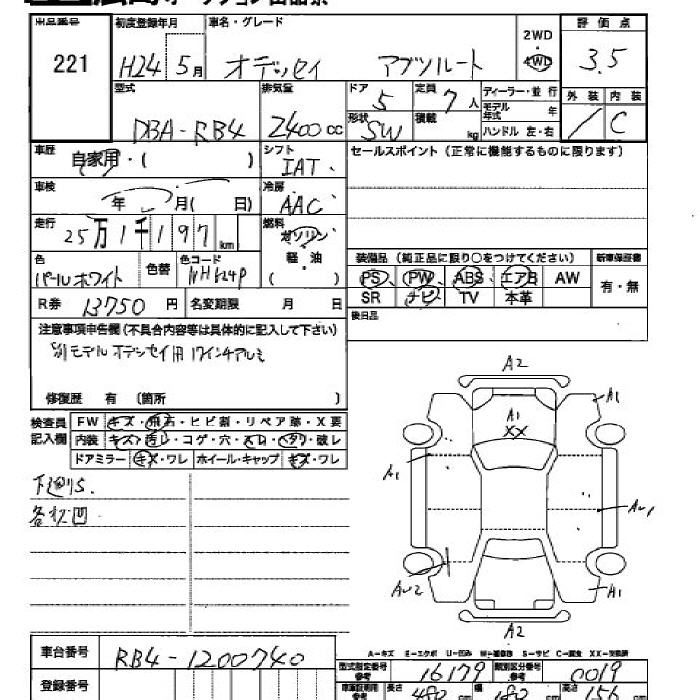 出品番号
221
初度登録年月
H24 5月
車名・グレード
オデッセイ アブソルート
2WD
・
4WD
評価点
3.5
外装 内装
/ C
型式
DBA-RB4
排気量
2400 cc
ドア 5
定員 7人
形状 SW
積載 kg
ディーラー・並行
モデル年式 年
ハンドル 左・右
車歴
自家用・( )
シフト
IAT
セールスポイント (正常に機能するものに限ります)
車検
年 月( 日)
冷房
AAC
走行
25万1千197km
燃料
ガソリン
軽・油
( )
色
パールホワイト
色替
色コード
NH624P
装備品 (純正品に限り○をつけてください)
新車保証書
PS PW ABS エアB AW
SR ナビ TV 本革
有・無
R券 13750円
名変期限 月 日
後日品
注意事項申告欄(不具合内容等は具体的に記入して下さい)
モデル オデッセイ用 17インチアルミ
修復歴 有 〔箇所 〕
検査員
記入欄
FW キズ・飛石・ヒビ割・リペア跡・X要
内装 キズ・汚レ・コゲ・穴・スレ・ヘタリ・破レ
ドアミラー キズ・ワレ ホイール・キャップ キズ・ワレ
下廻りS.
各杉凹
A2
A1
A1
XX
A1
AU1
AU2
A1
A2
A-キズ E-エクボ U-凹み W-補修跡 S-サビ C-腐食 XX-交換済
車台番号
RB4-1200740
登録番号
型式指定番号
参考
16179
類別区分番号
参考
0019
長さ 480 cm 幅 180 cm 高さ 156 cm